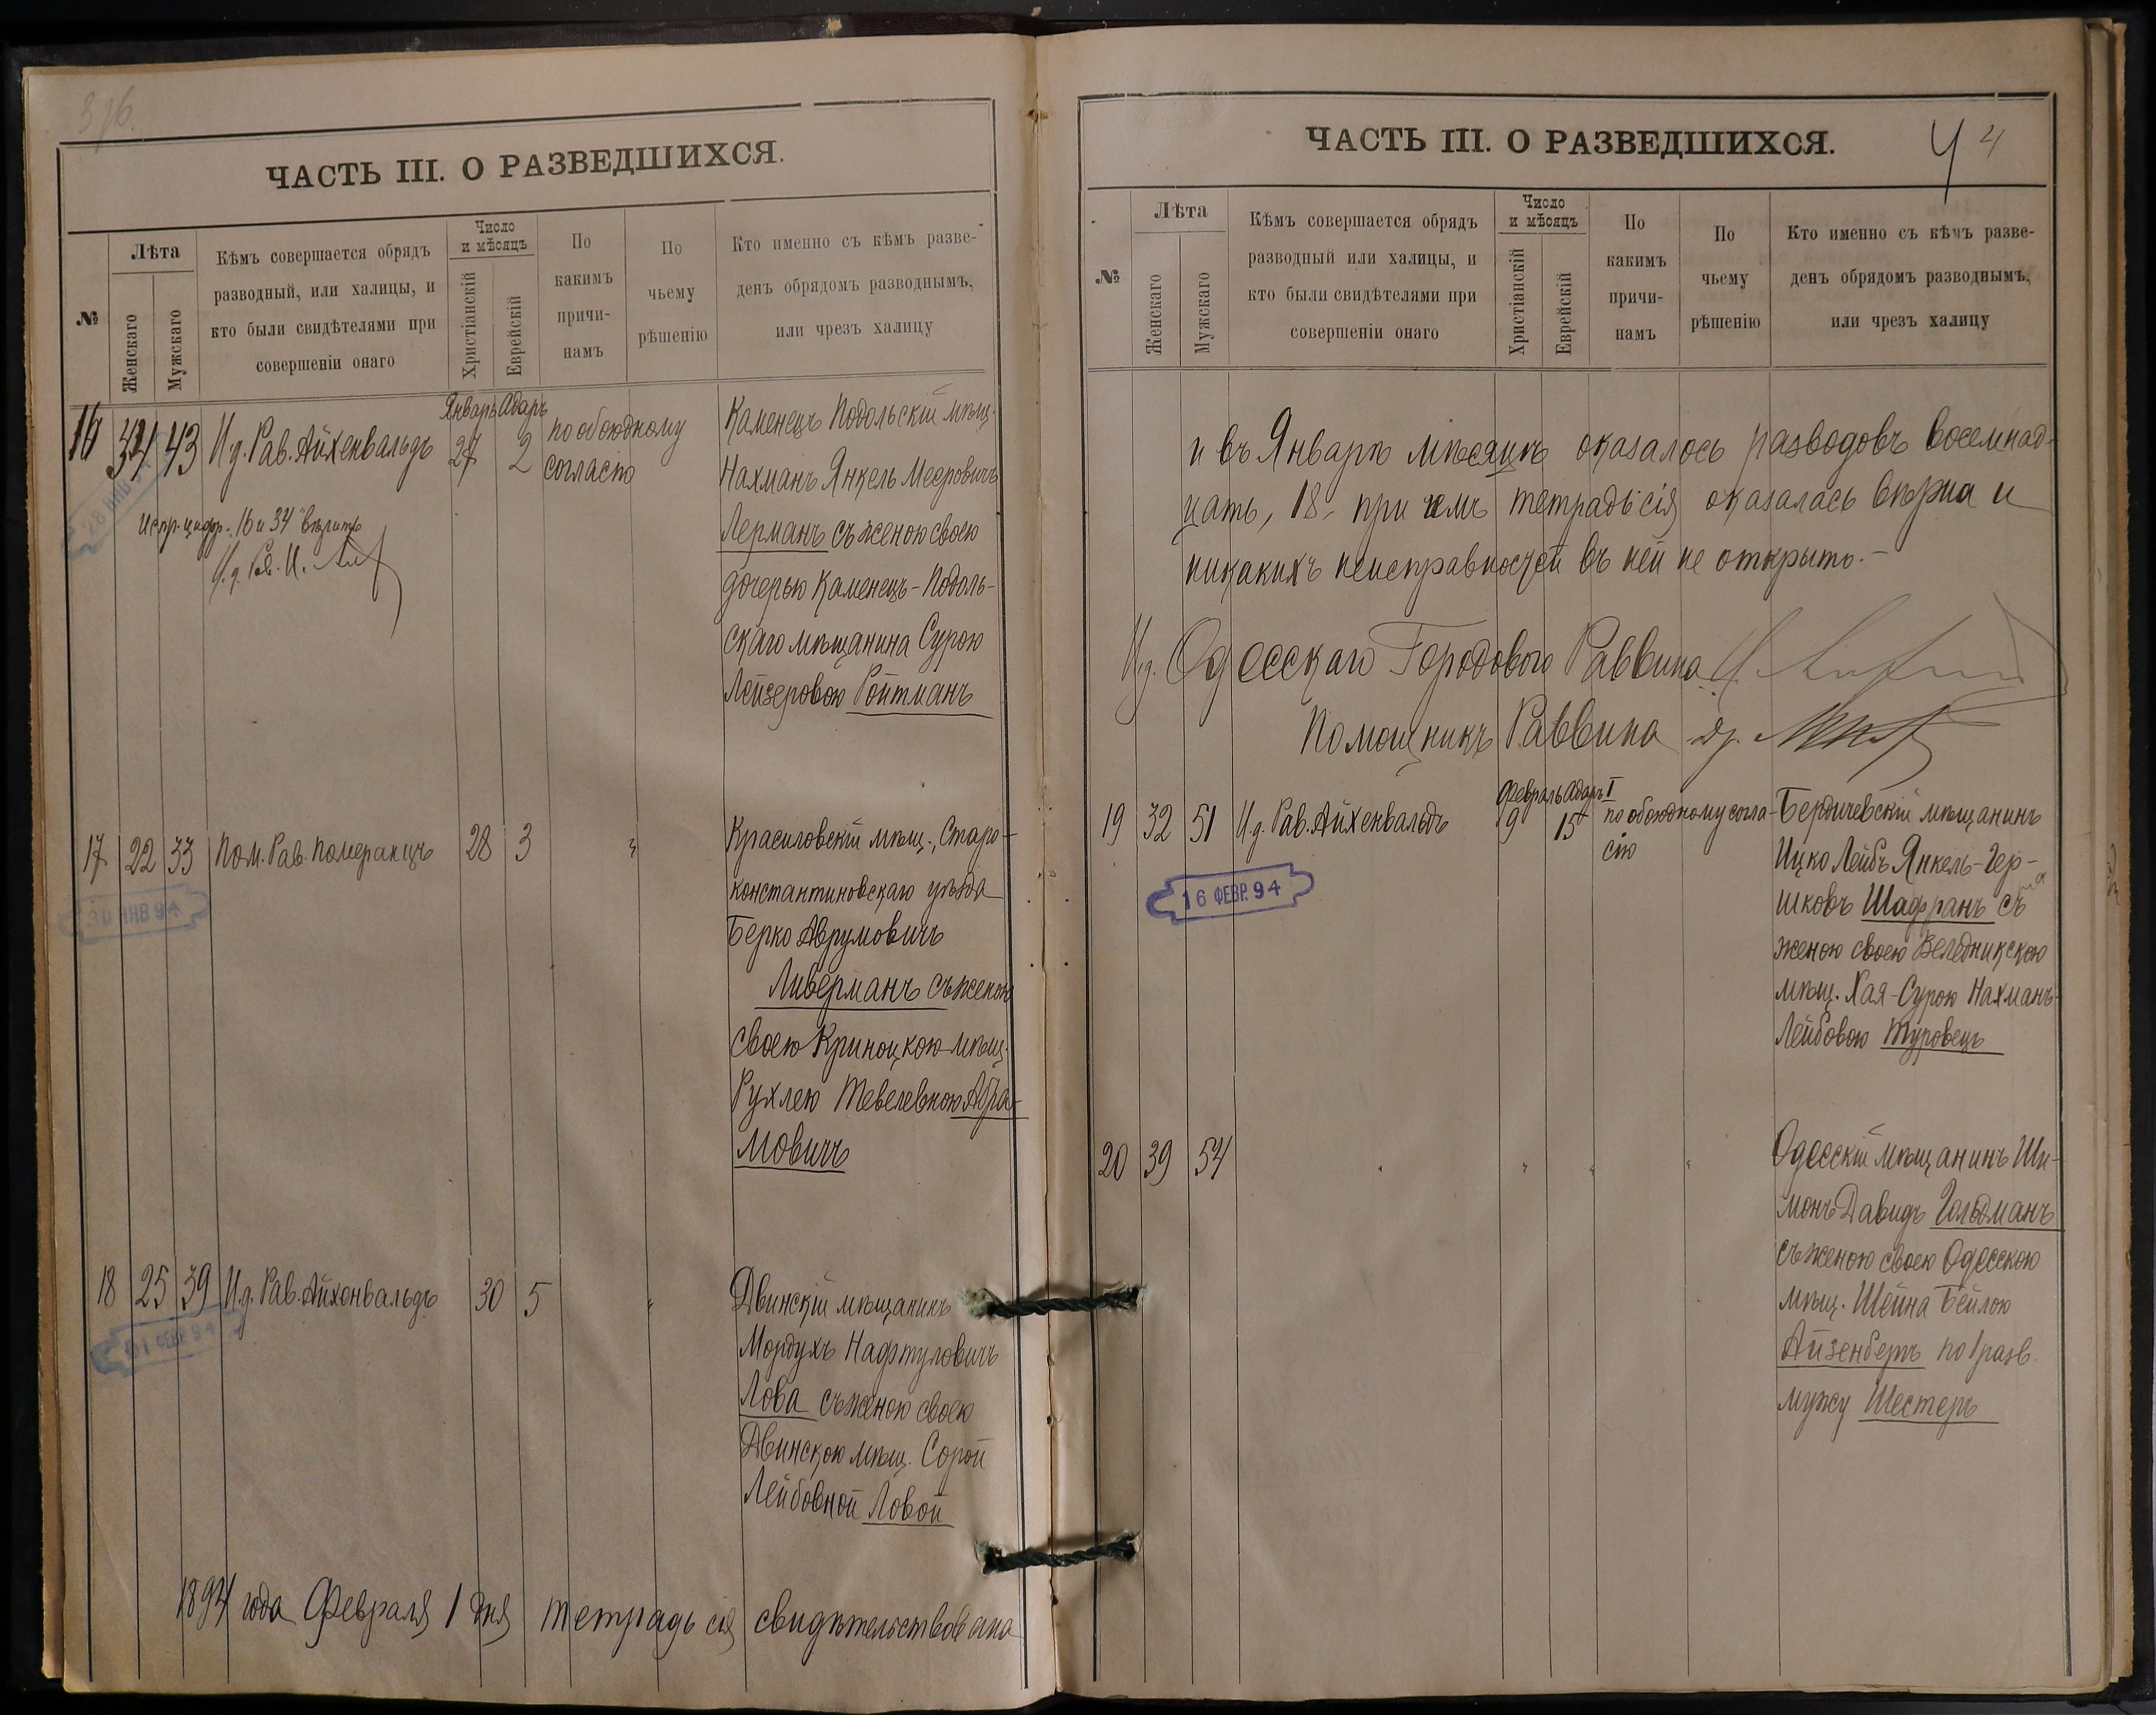 396.
ЧАСТЬ III. О РАЗВЕДШИХСЯ.
№
Лѣта
Женскаго
Мужскаго
Кѣмъ совершается обрядъ
разводный, или халицы, и
кто были свидѣтелями при
совершеніи онаго
Число
и мѣсяцъ
Христіанскій
Еврейскій
По
какимъ
причи-
намъ
По
чьему
рѣшенію
Кто именно съ кѣмъ разве-
денъ обрядомъ разводнымъ,
или чрезъ халицу
Январь Адаръ
16 34 43 И.д. Рав. Айхенвальдъ 27 2 по обоюдному
согласію
Каменецъ Подольскій мѣщ.
Нахманъ Янкель Мееровичъ
Лерманъ съ женою своею
дочерью Каменецъ-Подоль-
скаго мѣщанина Сурою
Лейзеровою Ройтманъ
28 ЯНВ
испр. цифр. "16 и 34" вѣрить
И.д. Рав. И.
17 22 33 Пом. Рав. Померанцъ 28 3 "
Красиловскій мѣщ., Старо-
константиновскаго уѣзда
Берко Аврумовичъ
Ливерманъ съ женою
своею Криноцкою мѣщ.
Рухлею Тевелевною Абра-
мовичъ
30 ЯНВ 94
18 25 39 И.д. Рав. Айхенвальдъ 30 5 "
Двинскій мѣщанинъ
Мордухъ Нафтуловичъ
Лова съ женою своею
Двинскою мѣщ. Сорой
Лейбовной Ловой
01 ФЕВР. 94
1894 года Февраля 1 дня тетрадь сія свидѣтельствована
ЧАСТЬ III. О РАЗВЕДШИХСЯ.
4 4
№
Лѣта
Женскаго
Мужскаго
Кѣмъ совершается обрядъ
разводный или халицы, и
кто были свидѣтелями при
совершеніи онаго
Число
и мѣсяцъ
Христіанскій
Еврейскій
По
какимъ
причи-
намъ
По
чьему
рѣшенію
Кто именно съ кѣмъ разве-
денъ обрядомъ разводнымъ,
или чрезъ халицу
и въ Январѣ мѣсяцѣ оказалось разводовъ восемнад-
цать, 18, при чемъ тетрадь сія оказалась вѣрна и
никакихъ неисправностей въ ней не открыто.-
И.д. Одесскаго Городового Раввина И.
Помощникъ Раввина др.
Февраль Адаръ I
19 32 51 И.д. Рав. Айхенвальдъ 9 15 по обоюдному согла-
сію
Бердичевскій мѣщанинъ
Ицко Лейбъ Янкель-Гер-
шковъ Шафранъ съ
женою своею Веледникскою
мѣщ. Хая-Сурою Нахманъ-
Лейбовою Туровецъ
16 ФЕВР. 94
20 39 54 " " " " "
Одесскій мѣщанинъ Ши-
монъ Давидъ Гольдманъ
съ женою своею Одесскою
мѣщ. Шейна Бейлою
Айзенбергъ по 1 разв.
мужу Шестеръ